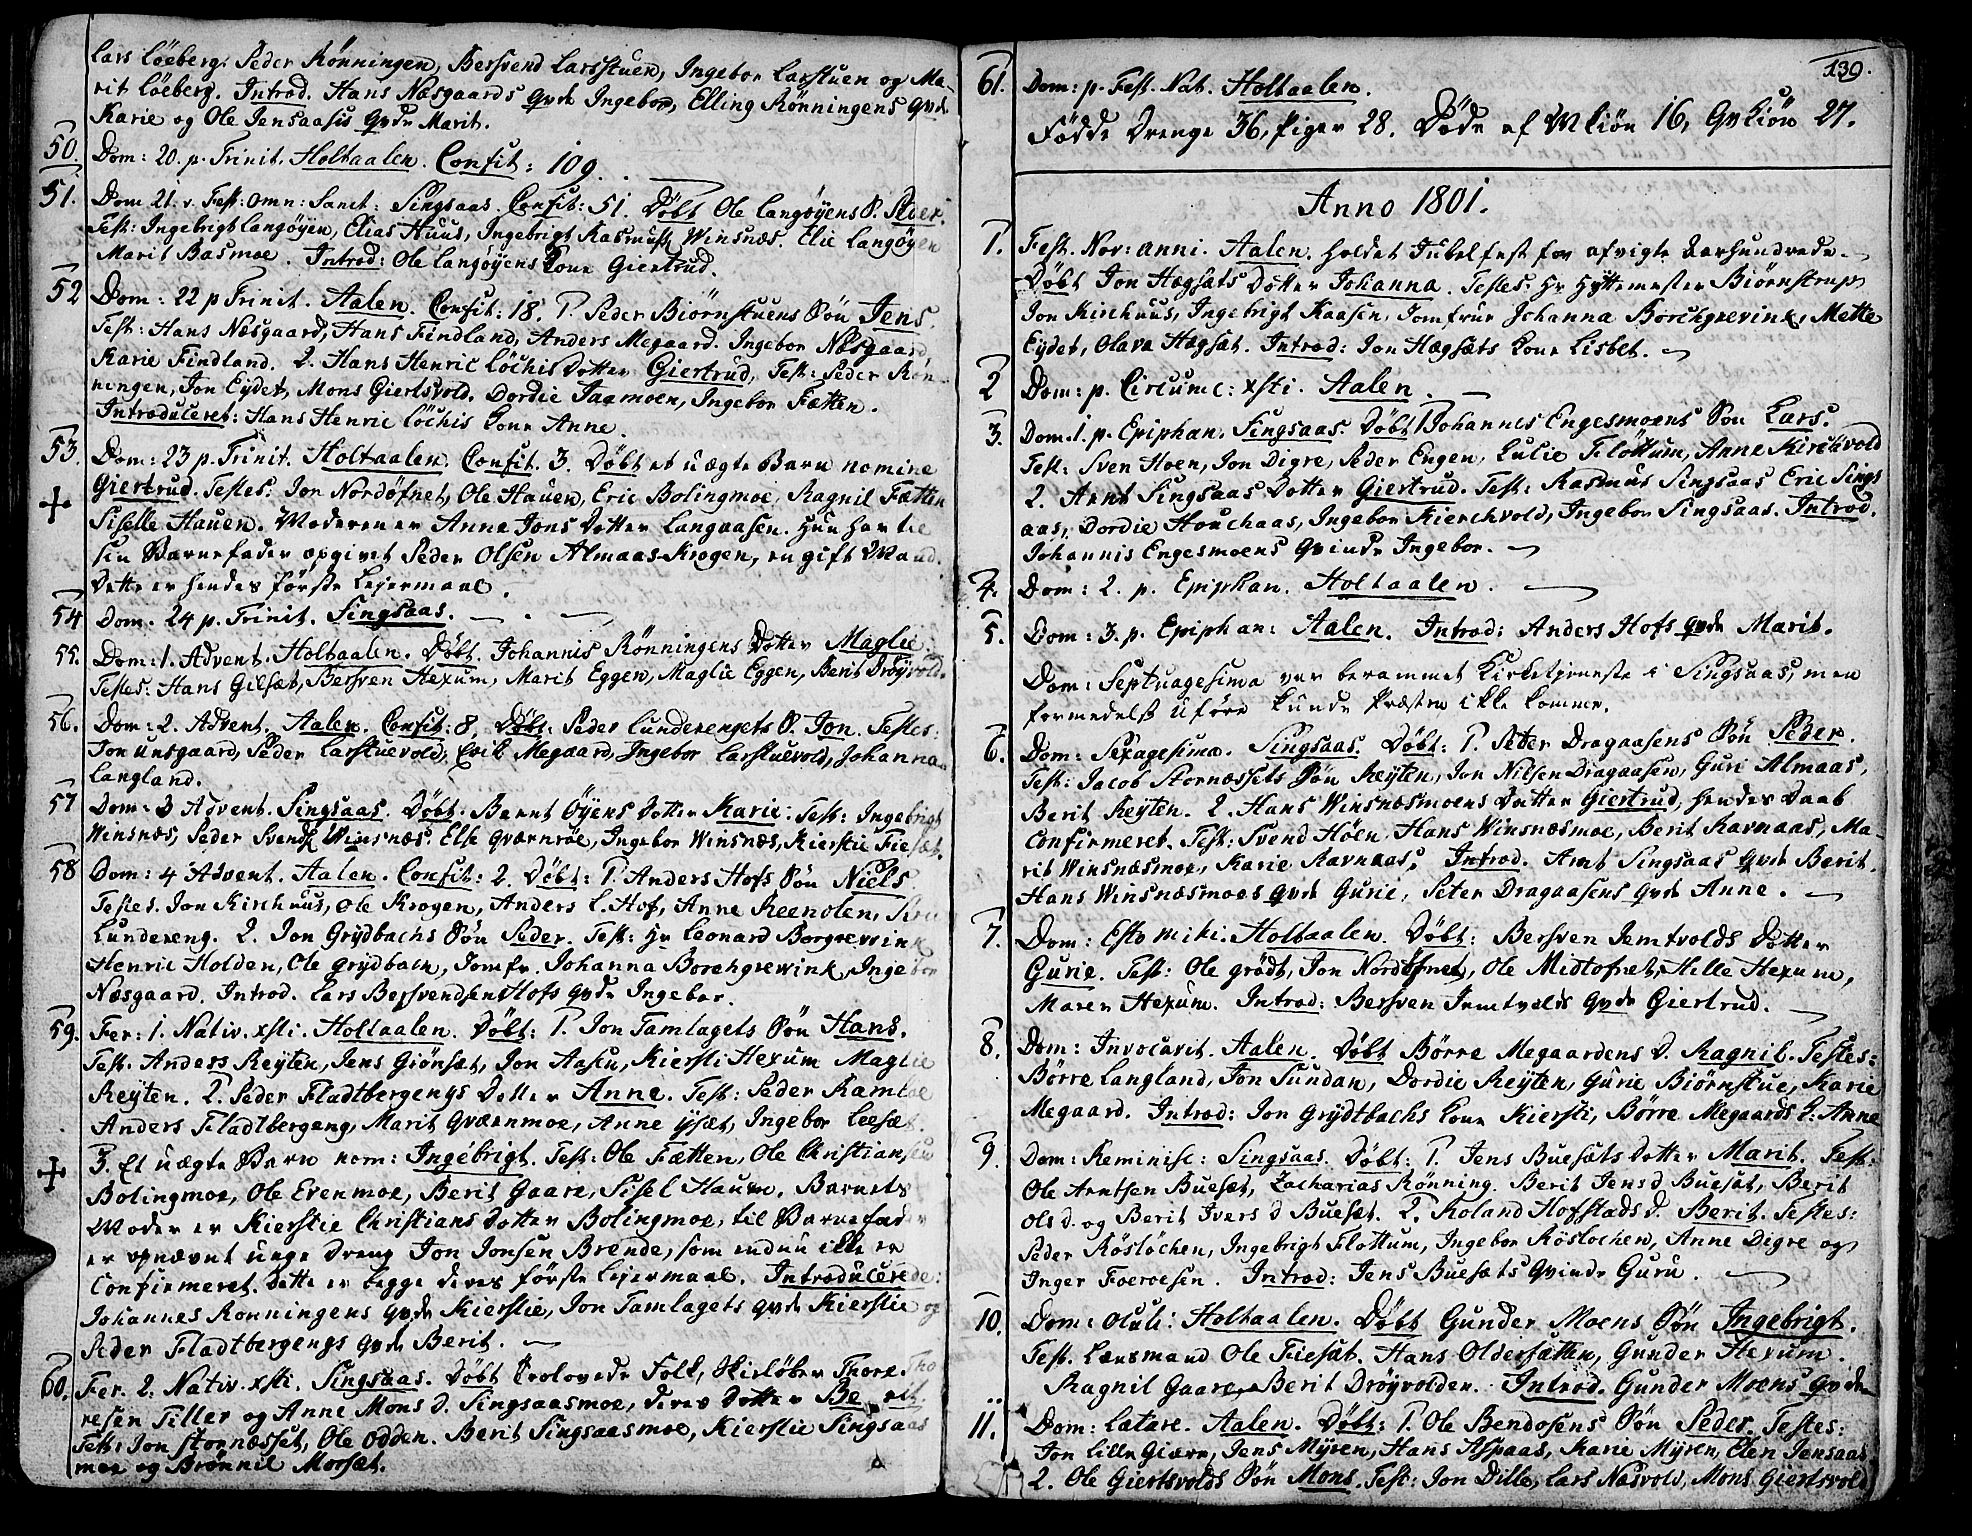 Lars Löeberg. Peder Rönningen, Bersvend Larsstuen, Ingebor Larstuen og Ma-
rit Löeberg. Introd. Hans Næsgaards Qvde Ingebor, Elling Rönningens Qvde
Karie og Ole Jensaasis Qvde Marit.
50. Dom: 20. p. Trinit. Holtaalen. Confit: 109.
51. Dom 21. v. Fest: omn: Sanct: Singsaas. Confit: 51. Döbt Ole Langöyens S. Peder.
Test: Ingebrigt Langöyen, Elias Huus, Ingebrigt Rasmuss. Winsnæs. Elie Langöyen
Marit Basmoe. Introd: Ole Langöyens Kone Giertrud.
52 Dom: 22 p Trinit. Aalen. Confit: 18. 1. Peder Biörnstuens Sön Jens.
Test: Hans Næsgaard, Hans Findland, Anders Megaard. Ingebor Næsgaard,
Karie Findland. 2. Hans Henric Löchis Dotter Giertrud, Test: Peder Rön-
ningen, Jon Eydet, Mons Giertsvold. Dordie Jaamoen, Ingebor Fætten.
Introduceret: Hans Henric Löchis Kone Anne.
53. Dom: 23 p. Trinit. Holtaalen. Confit. 3. Döbt et uægte Barn nomine
Giertrud. Testes: Jon Nordöfnet, Ole Hauen, Eric Bolingmoe, Ragnil Fætten
Siselle Hauen. Moderen er Anne Jons Dotter Langaasen. Hun har til
sin Barnefader opgivet Peder Olsen Almaas-Krogen, en gift Mand.
Dette er hendes förste Lejermaal.
54 Dom. 24 p. Trinit. Singsaas.
55. Dom: 1. Advent. Holtaalen. Döbt. Johannis Rönningens Dotter Maglie.
Testes: Hans Gilsæt, Bersven Hexum, Marit Eggen, Maglie Eggen, Berit Dröyvold.
56. Dom: 2. Advent. Aalen. Confit: 8, Döbt: Peder Lunderengets S. Jon. Testes:
Jon Unsgaard, Peder Larstuevold, Erik Megaard, Ingebor Larstuevold, Johanna
Langland.
57 Dom: 3 Advent. Singsaas. Döbt: Bernt Öyens Dotter Karie: Test: Ingebrigt
Winsnæs, Peder Svends. Winsnæs. Else Qværnröe, Ingebor Winsnæs, Kierstie Fiesæt.
58 Dom: 4 Advent. Aalen. Confit: 2. Döbt: 1. Anders Hofs Sön Niels
Testes. Jon Kirchuus, Ole Krogen, Anders L. Hof, Anne Reenolen,
Lundereng. 2. Jon Grydbachs Sön Peder. Test: Hr Leonard Borgrevink
Henric Holden, Ole grydbach, Jomfr. Johanna Borchgrewink, Ingebor
Næsgaard. Introd. Lars Bersvendsen Hofs Qvde Ingebor.
59. Fer: 1. Nativ. xsti. Holtaalen. Döbt: 1. Jon Tamlagets Sön Hans.
Test. Anders Reyten, Jens Giönsæt, Jon Aasen, Kiersti Hexum Maglie
Reyten. 2. Peder Fladtbergengs Dotter Anne. Test: Peder Ramloe
Anders Fladtbergeng, Marit Qværnmoe, Anne ysæt, Ingebor Leesæt.
3. Et uægte Barn nom: Ingebrigt. Test: Ole Fætten, Ole Christiansen
Bolingmoe, Ole Evenmoe, Berit Gaare, Sisel Hauen. Barnets
Moder er Kierstie Christians Dotter Bolingmoe, til Barnefader
er opnævnt unge Dreng Jon Jonsen Brende, som endnu ikke er
Confirmeret. Dette er begge deres förste Lejermaal. Introducerede:
Johannes Ronningens Qvde Kierstie, Jon Tamlagets Qvde Kierstie og
Peder Fladtbergengs Qvde Berit.
60. Fer. 2. Nativ. xsti. Singsaas. Döbt Trolovede Folk, Skielöber Thore Tho
resen Tiller og Anne Mons d. Singsaasmoe, deres Dotter Berit.
Test: Jon Stornæsset, Ole Odden. Berit Singsaasmoe, Kierstie Singsaas
moe og Brönnil Morsæt.
139.
61. Dom: p. Fest. Nat. Holtaalen.
Födde Drenge 36, Piger 28. Döde af Mkiön 16, Qvkiön 27.
Anno 1801.
1. Fest. Nov: anni. Aalen. holdet Jubelfest for afvigte Aarhundrede.
Döbt Jon Hægsæts Dotter Johanna. Testes: Hr Hyttemester Biörnstrup
Jon Kirchuus, Ingebrigt Kaasen, Jomfrue Johanna Borchgrevink, Mette
Eydet, Olava Hægsæt. Introd: Jon Hægsæts Kone Lisbet.
2 Dom: p. Circumc: xsti. Aalen.
3. Dom. 1. p. Epiphan. Singsaas. Döbt 1 Johannes Engesmoens Sön Lars.
Test: Sven Hoen, Jon Digre, Peder Engen, Lulie Flöttum, Anne Kirchvold
2. Arnt Singsaas Dotter Giertrud. Test: Rasmus Singsaas Eric Sings
aas, Dordie Houchaas, Ingebor Kierchvold, Ingebor Singsaas. Introd.
Johannis Engesmoens Qvinde Ingebor.
4. Dom: 2. p. Epiphan. Holtaalen.
5. Dom: 3. p. Epiphan: Aalen. Introd: Anders Hofs qvde Marit.
Dom: Septuagesima var berammet Kirketjeneste i Singsaas, men
formedelst Uföre kunde Præsten ikke komme.
6. Dom: Sexagesima. Singsaas. Döbt: 1. Peter Dragaasens Sön Peder.
Test: Jacob Stornæssets Sön Reyten, Jon Nilsen Dragaasen, Guri Almaas,
Berit Reyten. 2. Hans Winsnæsmoens Datter Giertrud, hendes Daab
Confirmeret. Test: Svend Höen Hans Winsnæsmoe, Berit Ravnaas, Ma-
rit Winsnæsmoe, Karie Ravnaas. Introd. Arnt Singsaas Qvde Berit.
Hans Winsnæsmoes Qvde Gurie, Peter Dragaasens Qvde Anne.
7. Dom: Esto mihi. Holtaalen. Döbt: Bersven Jemtvolds Dotter
Gurie. Test: Ole grödt, Jon Nordöfnet, Ole Midtofnet, Helle Hexum,
Maren Hexum. Introd: Bersven Jemtvolds Qvde Giertrud.
8. Dom: Invocavit. Aalen. Döbt Börre Megaardens D. Ragnil. Testes:
Börre Langland, Jon Sundan, Dordie Reyten, Gurie Biörnstue, Karie
Megaard. Introd: Jon Grydtbachs Kone Kiersti, Börre Megaards K: Anne
9. Dom: Reminisc: Singsaas. Döbt: 1. Jens Buesæts Dotter Marit. Test:
Ole Arntsen Buesæt, Zacharias Rönning. Berit Jensd Buesæt, Berit
Ols d. og Berit Ivers d Buesæt. 2. Roland Hofstads d. Berit. Testes:
Peder Röslöchen, Ingebrigt Flottum, Ingebor Röslochen, Anne Digre og
Inger Foeroesen. Introd: Jens Buesæts Qvinde Guru.
10. Dom: Oculi: Holtaalen. Döbt Gunder Moens Sön Ingebrigt.
Test. Lensmand Ole Fiesæt. Hans Oldersætten, Gunder Hexum.
Ragnil Gaare, Berit Dröyvolden. Introd. Gunder Moens Qvde
11. Dom: Lætare. Aalen. Döbt: 1. Ole Bendosens Sön Peder. Testes:
Jon Lille Giære, Jens Myren, Hans Aspaas, Karie Myren, Elen Jensaas
2. Ole Giertsvolds Sön Mons. Test: Jon Dille, Lars Næsvold, Mons Giertsvold